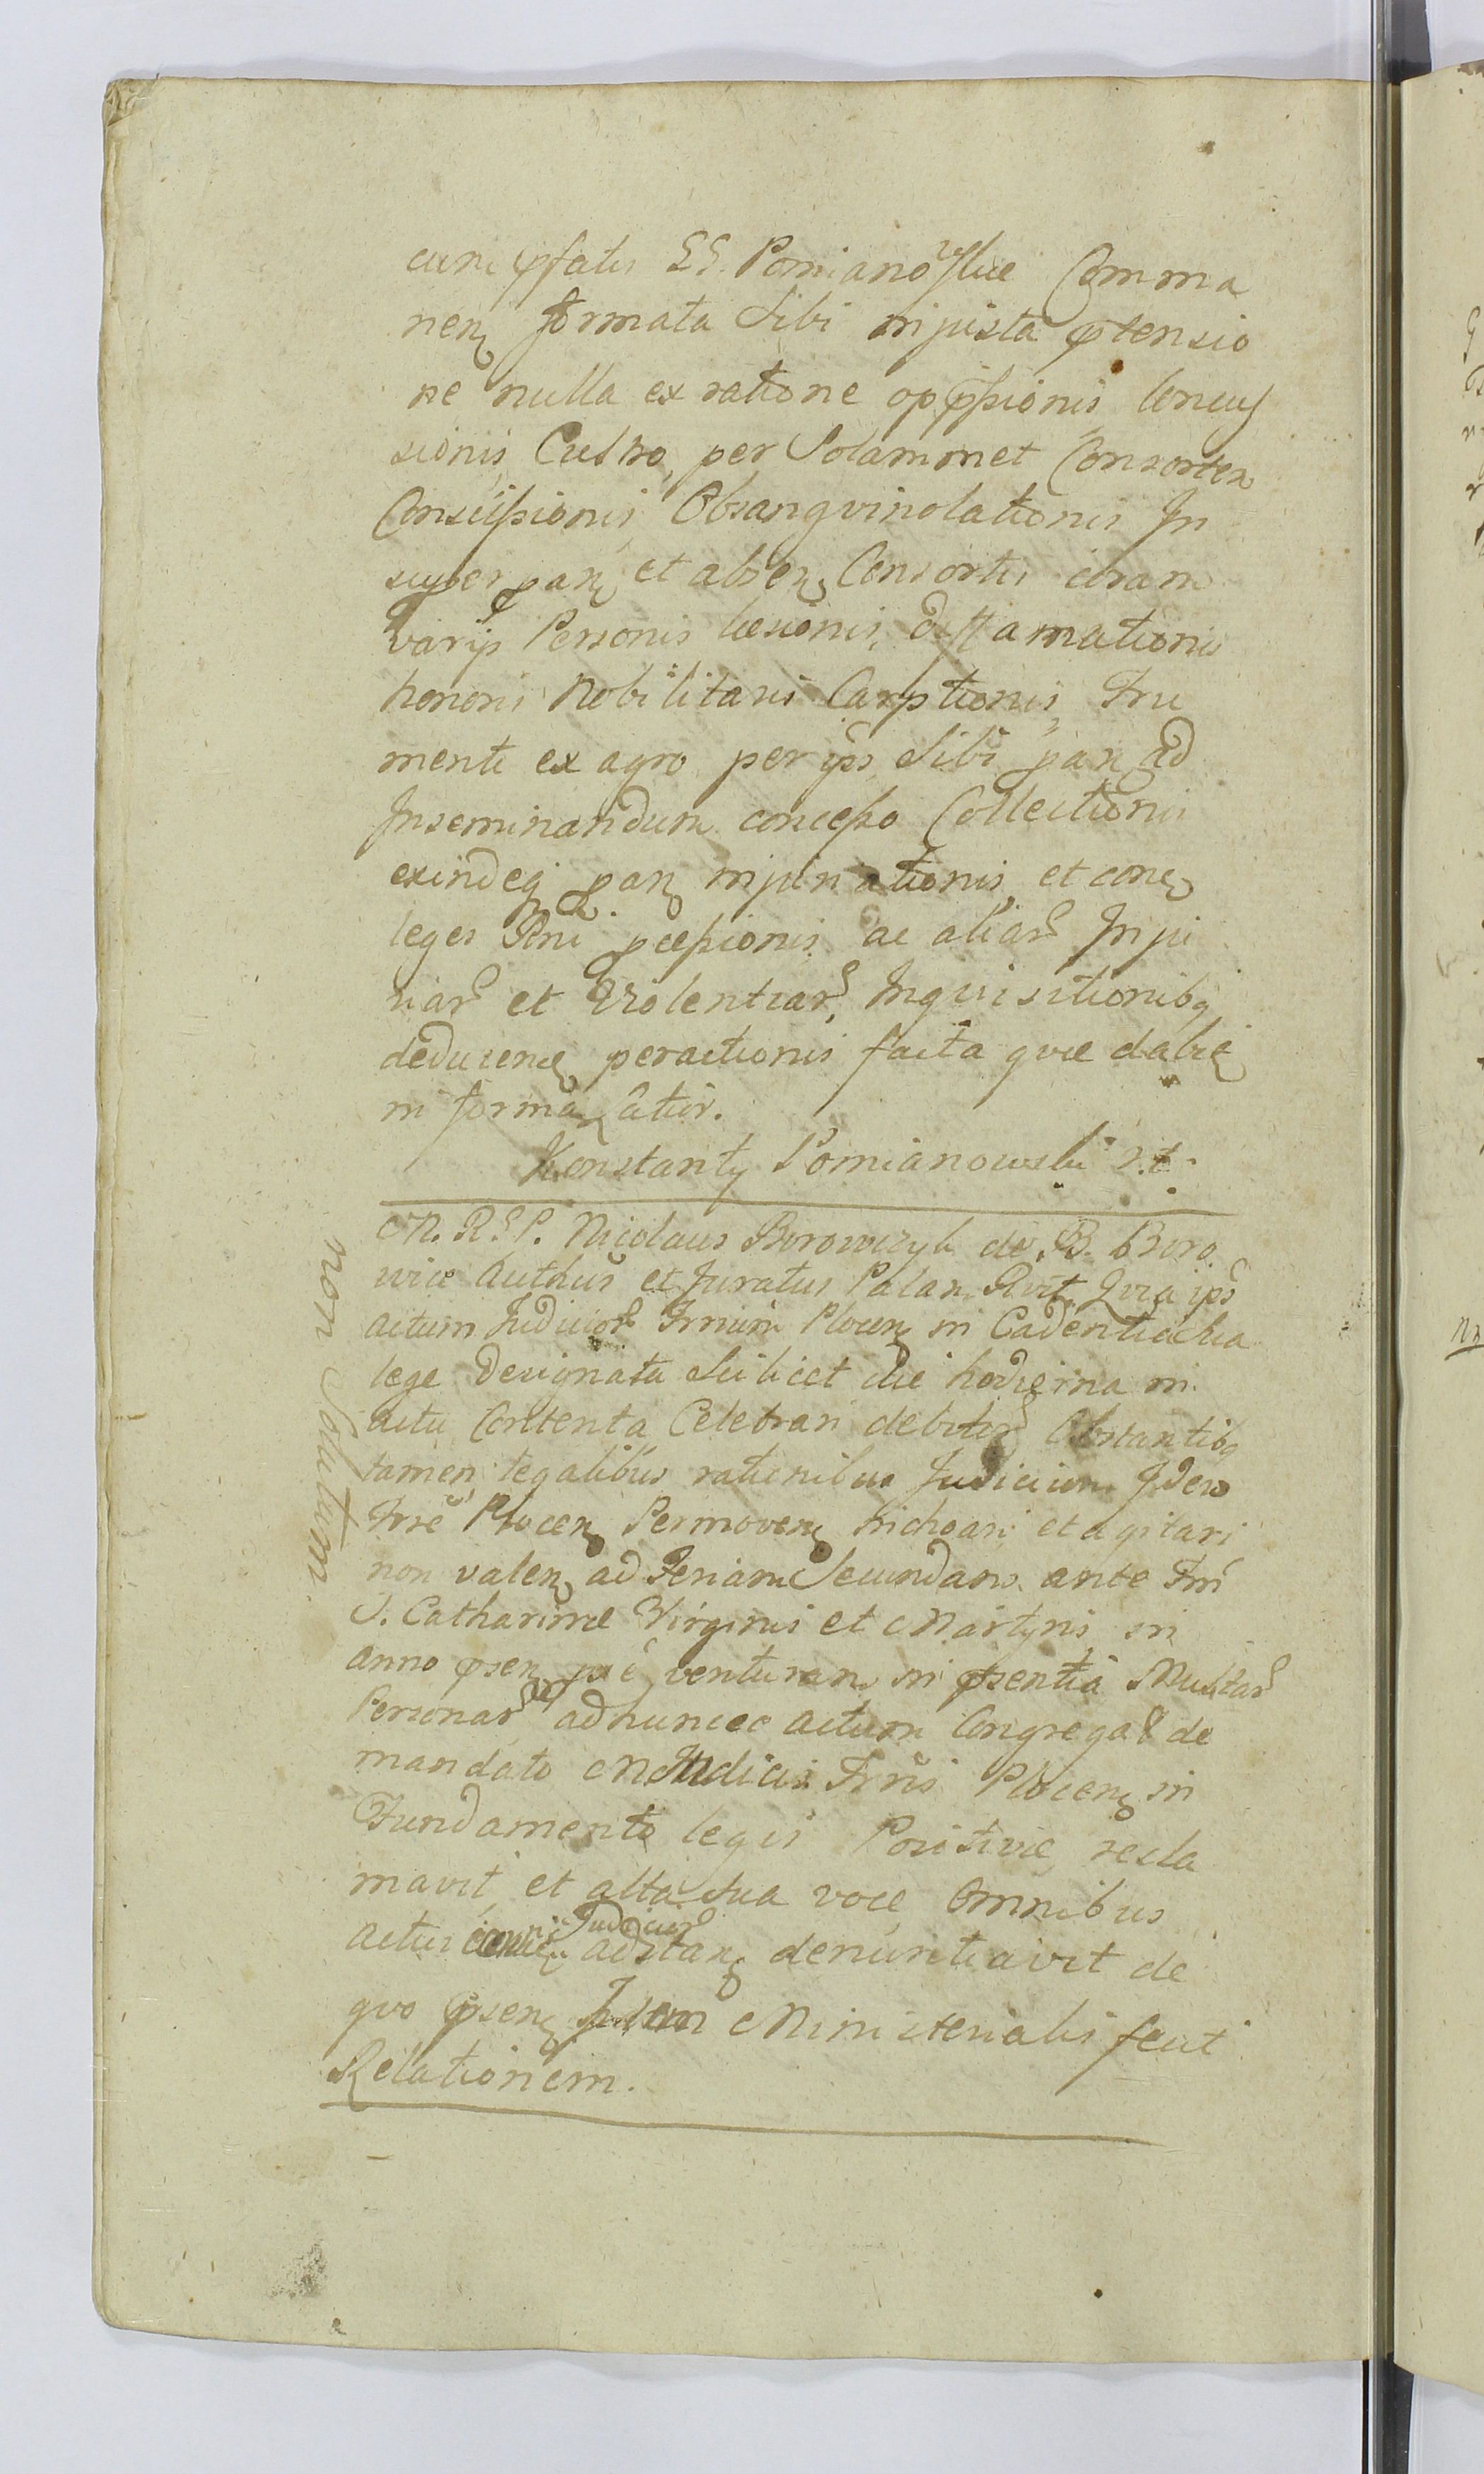 cum pfatis GG. Pomianowskie Comma
nen formata Sibi injusta ptensio
ne nulla ex ratione oppssionis Concus
sionis Cultro, per Solammet Consortem
Conscissionis Obsangvinolationis In
super pan et absen Consortis coram
varijs Personis laesionis, diffamationis
honoris Nobilitaris Carptionis, Fru
menti ex agro per ips Sibi pan ad
Inseminandum concesso Collectionis
exindeq pan injuriationis, et con
leges Rni pcessionis ac aliar Inju
riar et Violentiar, Inquisitionibq
deducen peractionis facta quae dabie
in forma atur.
Konstanty Pomianowski
M. R. P. Nicolaus Borowczyk de B. Boro
wice Authus et Juratus Palam Rvit Qvia ips
actum Judicior Trrium Plocen in Cadentia sua
lege designata Scilicet die hodierna in
actu Contenta Celebrari debitur Obstantibq
tamen legalibus rationibus Judicium Idem
Trre Plocen Permoven Inchoari et agitari
non valen ad Feriam Secundam ante Fm
S. Catharinae Virginis et Martyris in
anno psen pxe venturam in psentia Multar
Personar ad huncce actum Congregat de
mandato M Judicis Trris Plocen in
Fundamento legis Positivae recla
mavit, et alta sua voce Omnibus
actui Judicior adstan denuntiavit de
quo psen Idem Ministerialis fecit
Relationem.
non Solutum